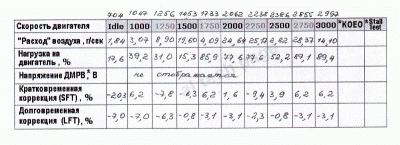 704 1047 1256 1453 1733 2062 2238 2386 2855 2997
Скорость двигателя Idle 1000 1250 1500 1750 2000 2250 2500 2750 3000 *KOEO *Stall Test
"Расход" воздуха, г/сек 1,84 3,07 8,90 19,60 4,09 24,64 25,17 22,62 28,37 14,10
Нагрузка на двигатель, % 17,6 39,2 31,0 15,3 85,9 77,6 77,6 52,2 87,1 89,4
Напряжение ДМРВ, В не отображается
Кратковременная коррекция (SFT), % -20,3 6,2 -7,8 -6,3 6,2 1,6 -9,4 3,9 6,2 6,2
Долговременная коррекция (LFT), % -7,0 -7,0 -6,3 -0,8 -3,1 -3,1 -2,3 -0,8 -3,1 -3,1